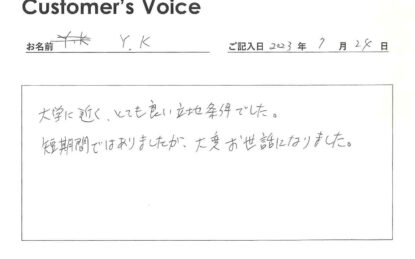 Customer's Voice
お名前 Y.K Y.K ご記入日 2023 年 7 月 24 日
大学に近く、とても良い立地条件でした。
短期間ではありましたが、大変お世話になりました。